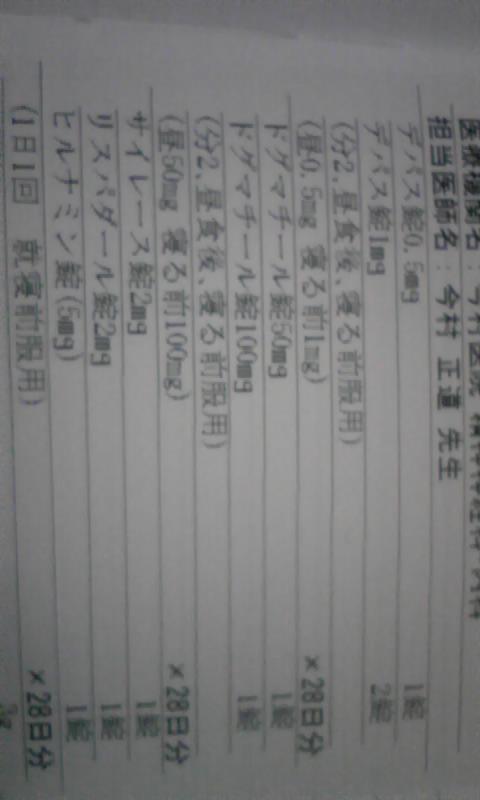 医療機関名：今村医院 精神神経科 内科
担当医師名：今村 正道 先生
デパス錠0.5mg 1錠
デパス錠1mg 2錠
(分2、昼食後、寝る前服用)
(昼0.5mg 寝る前1mg) ×28日分
ドグマチール錠50mg 1錠
ドグマチール錠100mg 1錠
(分2、昼食後、寝る前服用)
(昼50mg 寝る前100mg) ×28日分
サイレース錠2mg 1錠
リスパダール錠2mg 1錠
ヒルナミン錠(5mg) 1錠
(1日1回 就寝前服用) ×28日分